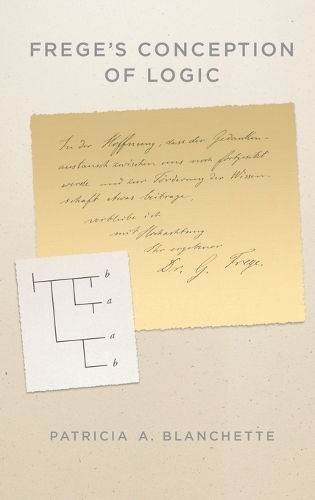 FREGE'S CONCEPTION
OF LOGIC
In der Hoffnung, dass der Gedanken-
austausch zwischen uns noch fortgesetzt
werde und zur Förderung der Wissen-
schaft etwas beitrage,
verbleibe ich
mit Hochachtung
Ihr ergebener
Dr. G. Frege.
b
a
a
b
PATRICIA A. BLANCHETTE